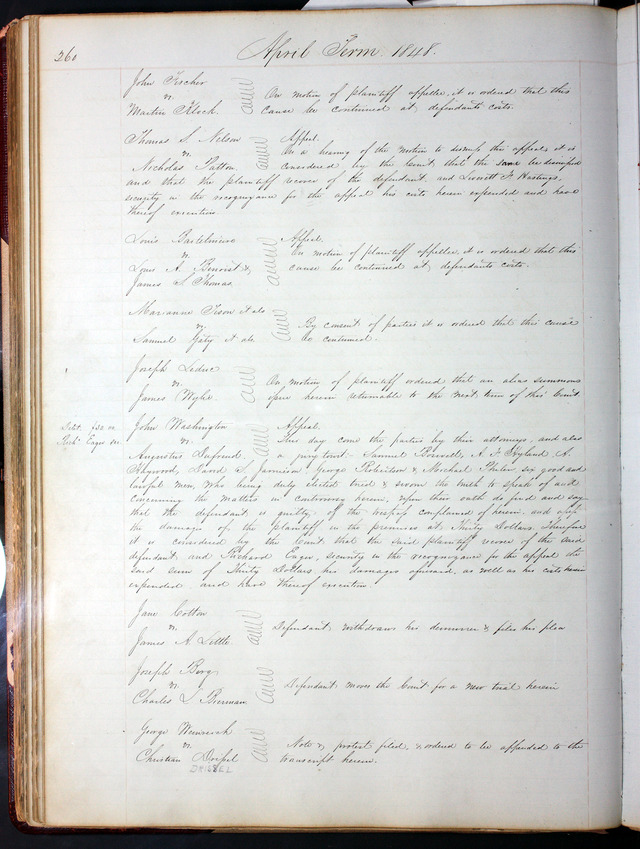 260 April Term 1848.
John Fischer
vs.
Martin Kloch.
On motion of plaintiff appellee, it is ordered that this
cause be continued at defendants costs.
Thomas S. Nelson
vs.
Nicholas Patton
Appeal.
On a hearing of the motion to dismiss this appeal, it is
considered by the Court, that the same be dismissed
and that the plaintiff recover of the defendant, and Leverett F. Hastings,
security in the recognizance for the appeal his costs herein expended and have
thereof execution.
Louis
vs.
Louis A. Benoist &
James S. Thomas.
Appeal
On motion of plaintiff appellee, it is ordered that this
cause be continued at defendants costs.
Marianne Tison et als
vs.
Samuel Gaty et als.
By consent of parties it is ordered that this cause
be continued.
Joseph Leduc
vs.
James Wylie
On motion of plaintiff ordered that an alias summons
issue herein returnable to the next term of this Court.
Debt. $30.00
Richd. Eager Sec.
John Washington
vs.
Augustus Dufrend
Appeal.
This day come the parties by their attorneys, and also
a jury towit - Samuel Boswell, A. F. Hyland, A.
Haywood, David S. Jamison, George Robertson & Michael Phelan six good and
lawful men, who being duly elected tried & sworn the truth to speak of and
concerning the matters in controversy herein, upon their oath do find and say
that the defendant is guilty of the trespass complained of herein and assess
the damages of the plaintiff in the premises at Thirty Dollars. Therefore
it is considered by the Court that the said plaintiff recover of the said
defendant and Richard Eager, security in the recognizance for the appeal the
said sum of Thirty Dollars his damages aforesaid, as well as his costs herein
expended and have thereof execution.
Jane Cotton
vs.
James A. Little.
Defendant withdraws his demurrer & files his plea
Joseph Berg
vs.
Charles L. Bierman
Defendant moves the Court for a new trial herein
George Weinreich
vs.
Christian Dreipel
Note & protest filed, & ordered to be appended to the
transcript herein.